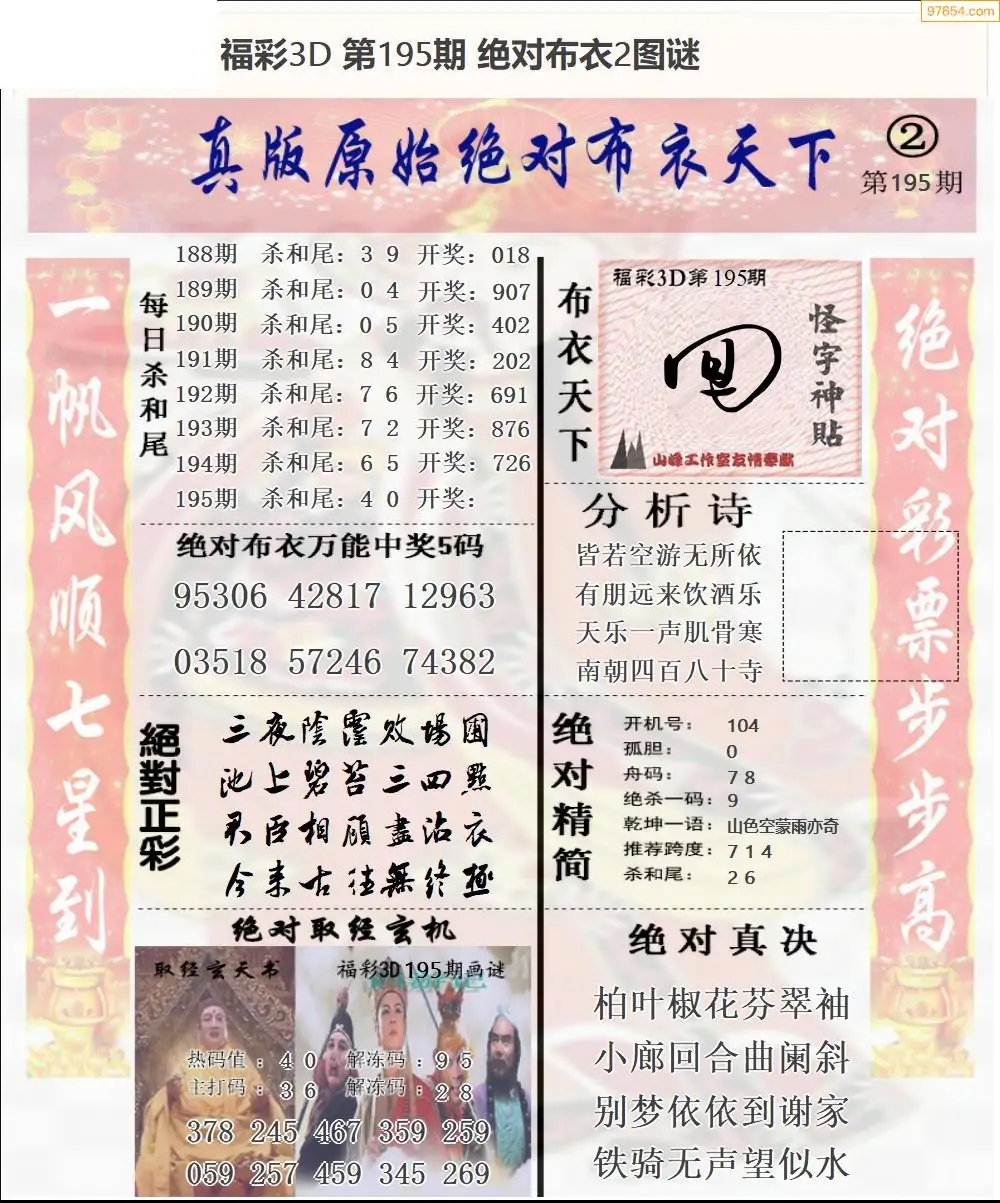 97654.com
福彩3D 第195期 绝对布衣2图谜
真版原始绝对布衣天下
②
第195期
一帆风顺七星到
每日杀和尾
188期 杀和尾：3 9 开奖：018
189期 杀和尾：0 4 开奖：907
190期 杀和尾：0 5 开奖：402
191期 杀和尾：8 4 开奖：202
192期 杀和尾：7 6 开奖：691
193期 杀和尾：7 2 开奖：876
194期 杀和尾：6 5 开奖：726
195期 杀和尾：4 0 开奖：
绝对布衣万能中奖5码
95306 42817 12963
03518 57246 74382
絕對正彩
三夜陰霪敗場圃
池上碧苔三四點
君臣相顧盡沾衣
今来古往無終極
绝对取经玄机
取经玄天书
福彩3D195期画谜
热码值：4 0 解冻码：9 5
主打码：3 6 解冻码：2 8
378 245 467 359 259
059 257 459 345 269
布衣天下
福彩3D第195期
怪字神貼
山峰工作室友情奉献
分析诗
皆若空游无所依
有朋远来饮酒乐
天乐一声肌骨寒
南朝四百八十寺
绝对精简
开机号： 104
孤胆： 0
舟码： 7 8
绝杀一码：9
乾坤一语：山色空蒙雨亦奇
推荐跨度：7 1 4
杀和尾： 2 6
绝对真决
柏叶椒花芬翠袖
小廊回合曲阑斜
别梦依依到谢家
铁骑无声望似水
绝对彩票步步高